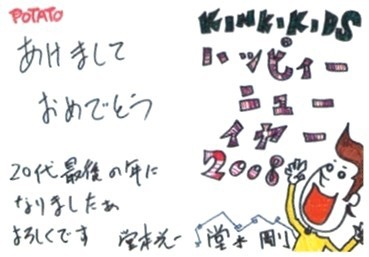 POTATO
あけまして
おめでとう
20代最後の年に
なりましたぁ
よろしくです 堂本光一
KINKI・KIDS
ハッピィー
ニュー
イヤー
2008
堂本 剛